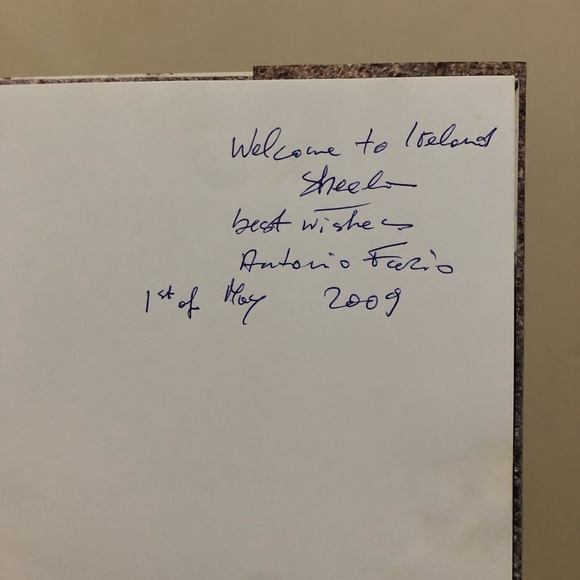 Welcome to Ireland
Sheela
best wishes
Antonio Fazio
1st of May 2009